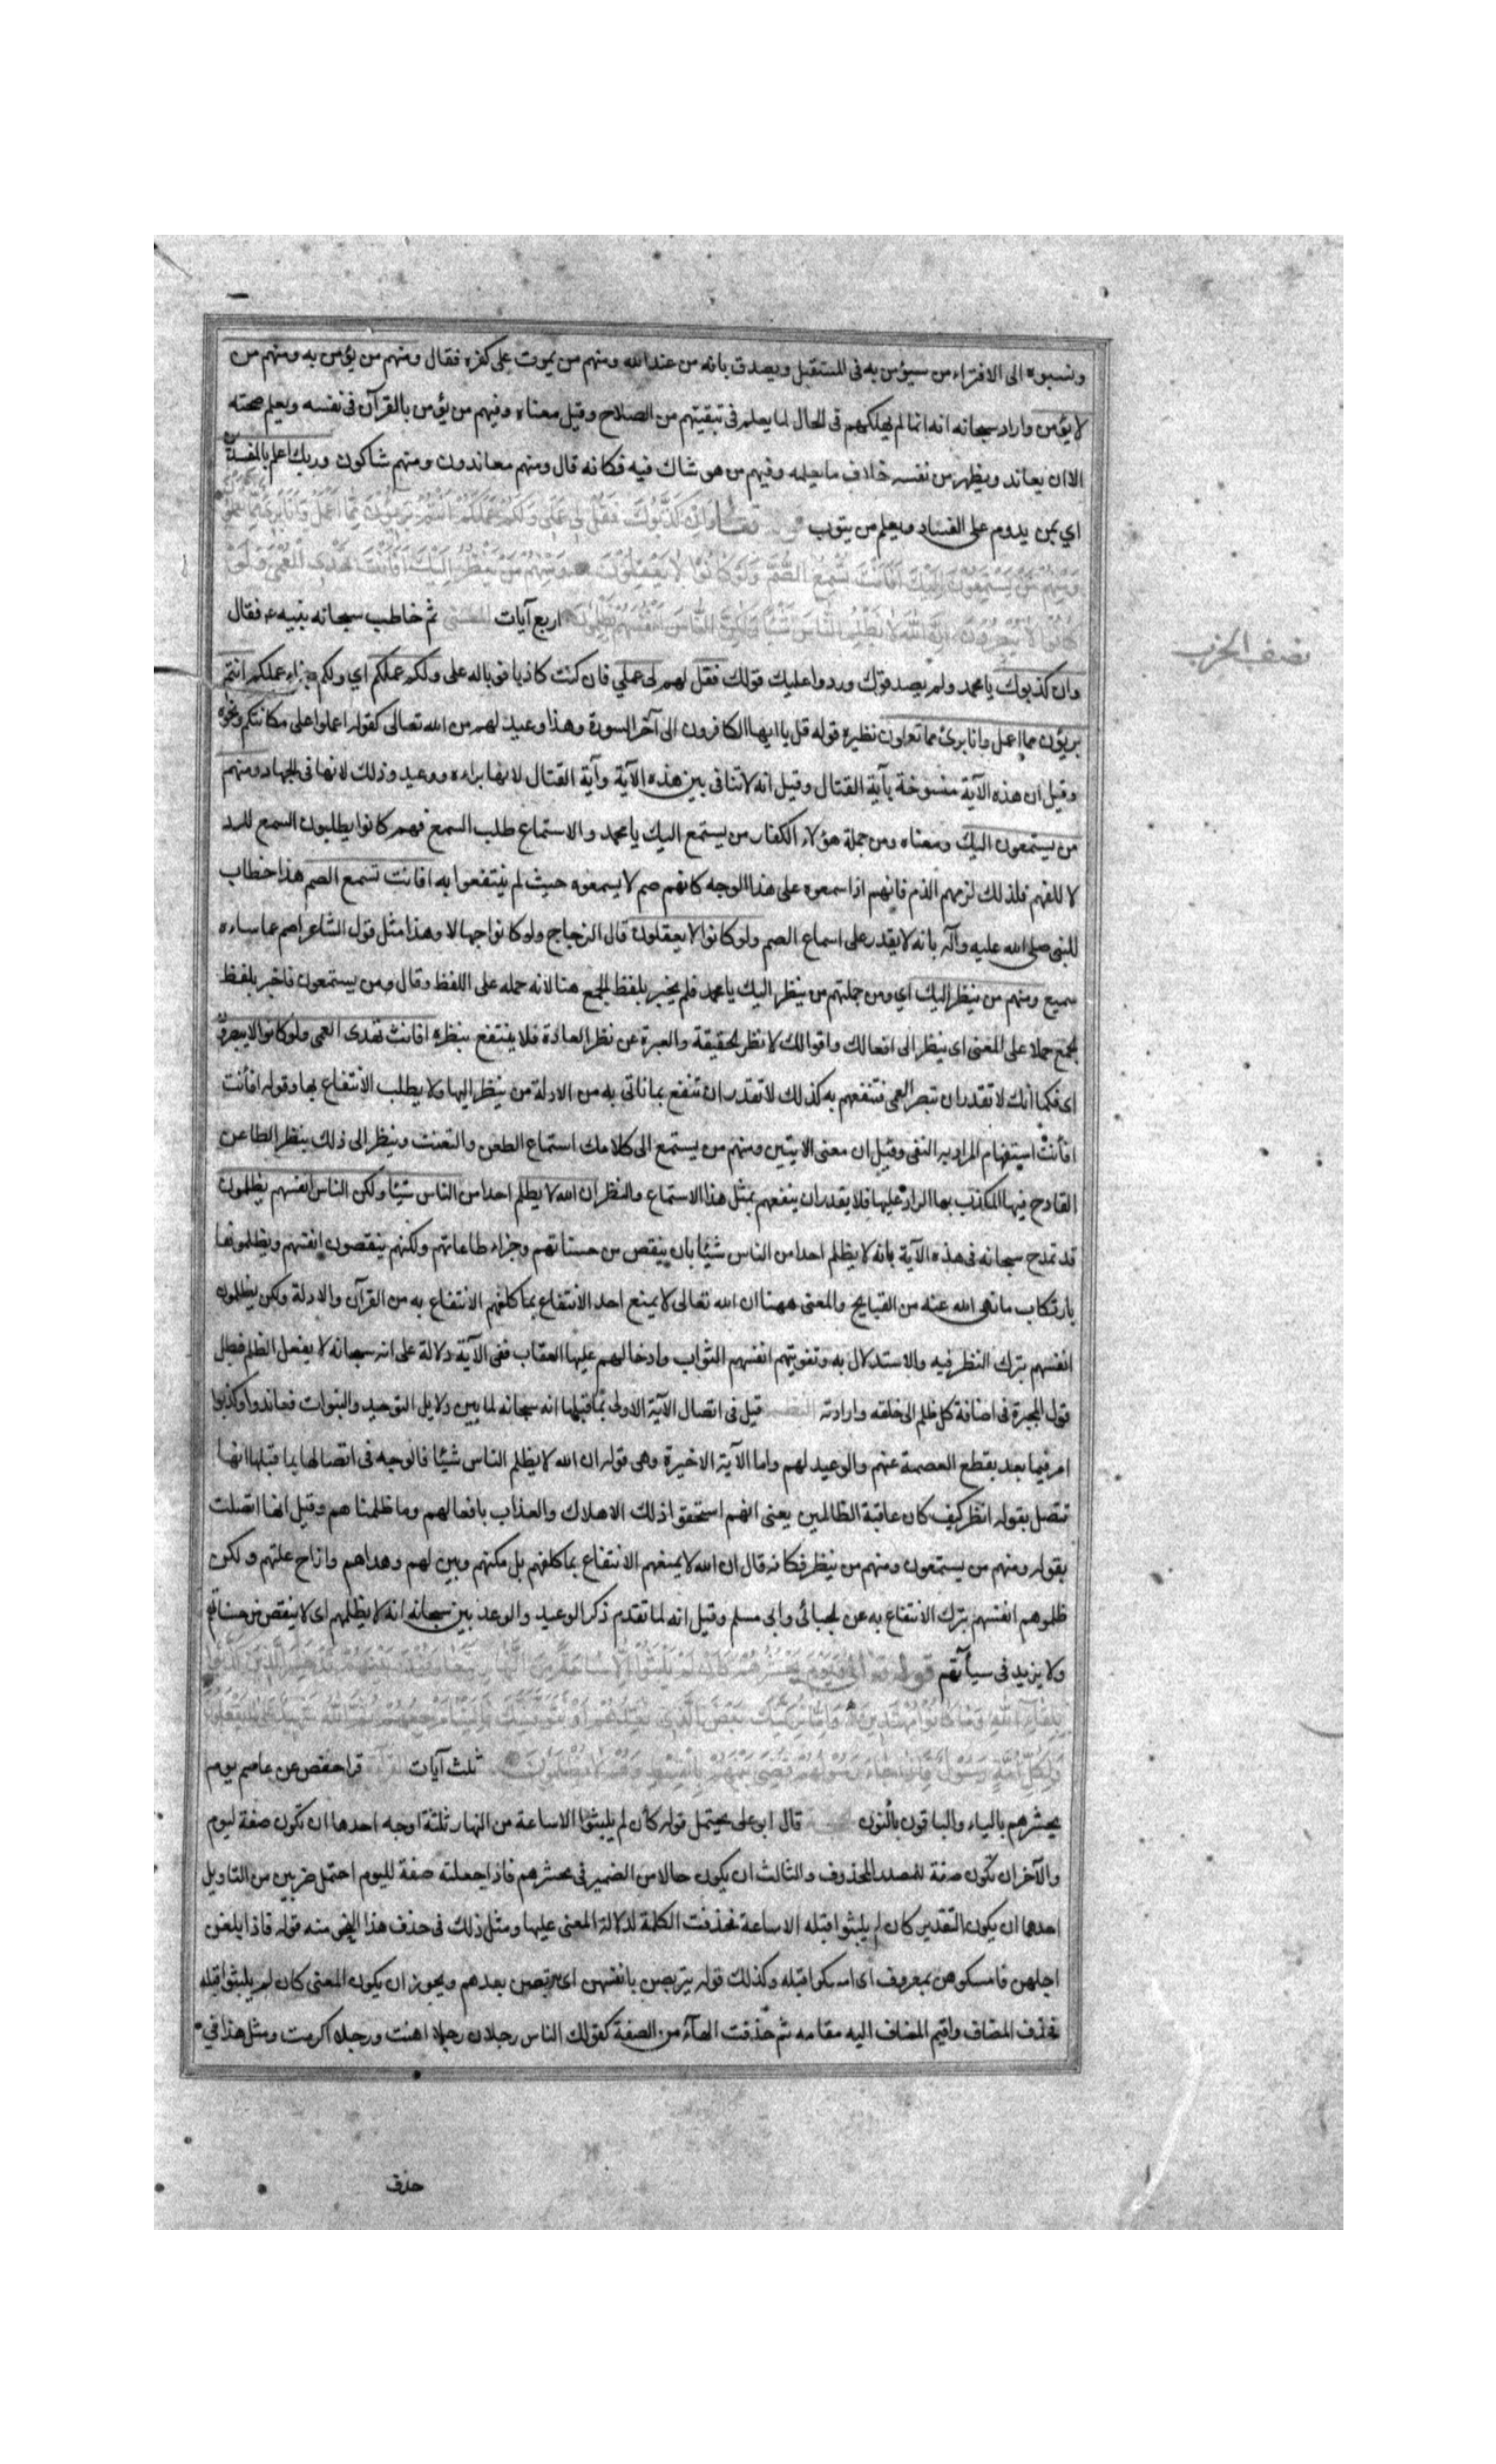 ونسبوه الى الافتراء من سيؤمن به فى المستقبل ويصدق بانه من عند الله ومنهم من يموت على كفره فقال ومنهم من يؤمن به ومنهم من
لا يؤمن واراد سبحانه انه انما لم يهلكهم فى الحال لما يعلم فى تبقيتهم من الصلاح وقيل معناه وفيهم من يؤمن بالقرآن فى نفسه ويعلم صحته
الا ان يعاند ويظهر من نفسه خلاف ما يعلمه وفيهم من هو شاك فيه فكانه قال ومنهم معاندون ومنهم شاكون وربك اعلم بالمفسدين
اي بمن يدوم على الفساد ويعلم من يتوب وان كذبوك فقل لى عملى ولكم عملكم انتم بريؤن مما اعمل وانا برئ مما تعملون
ومنهم من يستمعون اليك افانت تسمع الصم ولو كانوا لا يعقلون ومنهم من ينظر اليك افانت تهدى العمى ولو
كانوا لا يبصرون ان الله لا يظلم الناس شيئا ولكن الناس انفسهم يظلمون اربع آيات المعنى ثم خاطب سبحانه نبيه ع فقال
وان كذبوك يا محمد ولم يصدقوك وردوا عليك قولك فقل لهم لى عملي فان كنت كاذبا فوباله على ولكم عملكم اي ولكم جزاء عملكم انتم
بريؤن مما اعمل وانا برئ مما تعملون نظيره قوله قل يا ايها الكافرون الى آخر السورة وهذا وعيد لهم من الله تعالى كقوله اعملوا على مكانتكم ونحوه
وقيل ان هذه الآية منسوخة بآية القتال وقيل انه لا تنافى بين هذه الآية وآية القتال لانها براءه ووعيد وذلك لا ينافى الجهاد ومنهم
من يستمعون اليك ومعناه ومن جملة هؤلاء الكفار من يستمع اليك يا محمد والاستماع طلب السمع فهم كانوا يطلبون السمع للرد
لا للفهم فلذلك لزمهم الذم فانهم اذا سمعوه على هذا الوجه كانهم صم لا يسمعونه حيث لم ينتفعوا به افانت تسمع الصم هذا خطاب
للنبى صلى الله عليه وآله بانه لا يقدر على اسماع الصم ولو كانوا لا يعقلون قال الزجاج ولو كانوا جهالا وهذا مثل قول الشاعر اصم عما ساءه
سميع ومنهم من ينظر اليك اي ومن جملتهم من ينظر اليك يا محمد فلم يخبر بلفظ الجمع هنا لانه حمله على اللفظ وقال ومن يستمعون فاخبر بلفظ
الجمع حملا على المعنى اى ينظر الى افعالك واقوالك لا نظر الحقيقة والعبرة عن نظر العادة فلا ينتفع بنظره افانت تهدى العمى ولو كانوا لا يبصرون
اى فكما انك لا تقدر ان تبصر العمى فتنفعهم به كذلك لا تقدر ان تنفع بما تاتى به من الادلة من ينظر اليها ولا يطلب الانتفاع بها وقوله افأنت
افأنت استفهام المراد به النفى وقيل ان معنى الايتين ومنهم من يستمع الى كلامك استماع الطعن والتعنت وينظر الى ذلك ينظر الطاعن
القادح فيها المكذب بها الراد عليها فلا يقدر ان ينفعهم بمثل هذا الاستماع والنظر ان الله لا يظلم احدا من الناس شيئا ولكن الناس انفسهم يظلمون
قد تمدح سبحانه فى هذه الآية بانه لا يظلم احدا من الناس شيئا بان ينقص من حسناتهم وجزاء طاعاتهم ولكنهم ينقصون انفسهم ويظلمونها
بارتكاب ما نهى الله عنه من القبايح والمعنى ههنا ان الله تعالى لا يمنع احد الانتفاع بما كلفهم الانتفاع به من القرآن والادلة ولكن يظلمون
انفسهم بترك النظر فيه والاستدلال به وتفويتهم انفسهم الثواب وادخالهم عليها العقاب ففى الآية دلالة على انه سبحانه لا يفعل الظلم فبطل
قول المجبرة فى اضافة كل ظلم الى خلقه وارادته النظم قيل فى اتصال الآية الاولى بما قبلها انه سبحانه لما بين دلايل التوحيد والنبوات فعاندوا وكذبوا
امر فيما بعد بقطع العصمة عنهم والوعيد لهم واما الآية الاخيرة وهى قوله ان الله لا يظلم الناس شيئا فالوجه فى اتصالها بما قبلها انها
تتصل بقوله انظر كيف كان عاقبة الظالمين يعنى انهم استحقوا ذلك الاهلاك والعذاب بافعالهم وما ظلمناهم وقيل انها اتصلت
بقوله ومنهم من يستمعون ومنهم من ينظر فكانه قال ان الله لا يمنعهم الانتفاع بما كلفهم بل مكنهم وبين لهم وهداهم وازاح علتهم ولكن
ظلموهم انفسهم بترك الانتفاع به عن الجبائى وابى مسلم وقيل انه لما تقدم ذكر الوعيد والوعد بين سبحانه انه لا يظلمهم اى لا ينقص من حسناتهم
ولا يزيد فى سيأتهم قوله تعالى ويوم يحشرهم كان لم يلبثوا الا ساعة من النهار يتعارفون بينهم قد خسر الذين كذبوا
بلقاء الله وما كانوا مهتدين واما نرينك بعض الذى نعدهم او نتوفينك فالينا مرجعهم ثم الله شهيد على ما يفعلون
ولكل امة رسول فاذا جاء رسولهم قضى بينهم بالقسط وهم لا يظلمون ثلث آيات القرآءة قرا حفص عن عاصم يوم
يحشرهم بالياء والباقون بالنون الحجة قال ابو على يحتمل قوله كأن لم يلبثوا الا ساعة من النهار ثلثة اوجه احدها ان تكون صفة ليوم
والآخر ان تكون صفة للمصدر المحذوف والثالث ان يكون حالا من الضمير فى يحشرهم فاذا جعلته صفة لليوم احتمل ضربين من التاويل
احدها ان يكون التقدير كان لم يلبثوا قبله الا ساعة فحذفت الكلمة لدلالة المعنى عليها ومثل ذلك فى حذف هذا النحو منه قوله فاذا بلغن
اجلهن فامسكوهن بمعروف اى امسكوا قبله وكذلك قوله يتربصن بانفسهن اى يتربصن بعدهم ويجوز ان يكون المعنى كان لم يلبثوا قبله
فحذف المضاف واقيم المضاف اليه مقامه ثم حذفت الهآء من الصفة كقولك الناس رجلان رجلا اهنت ورجلا اكرمت ومثل هذا فى
حذف
نصف الحزب